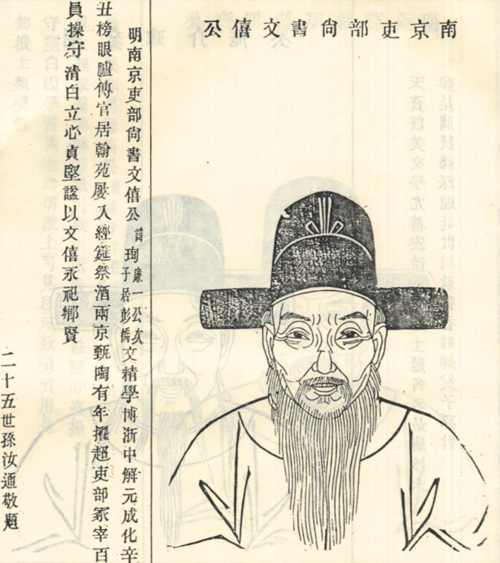 南京吏部尚書文僖公
明南京吏部尚書文僖公諱珣康一公次子居彭橋文精學博浙中解元成化辛
丑榜眼臚傳官居翰苑屢入經筵祭酒兩京甄陶有年擢超吏部冢宰百
員操守清白立心貞堅諡以文僖永祀鄉賢
二十五世孫汝通敬題